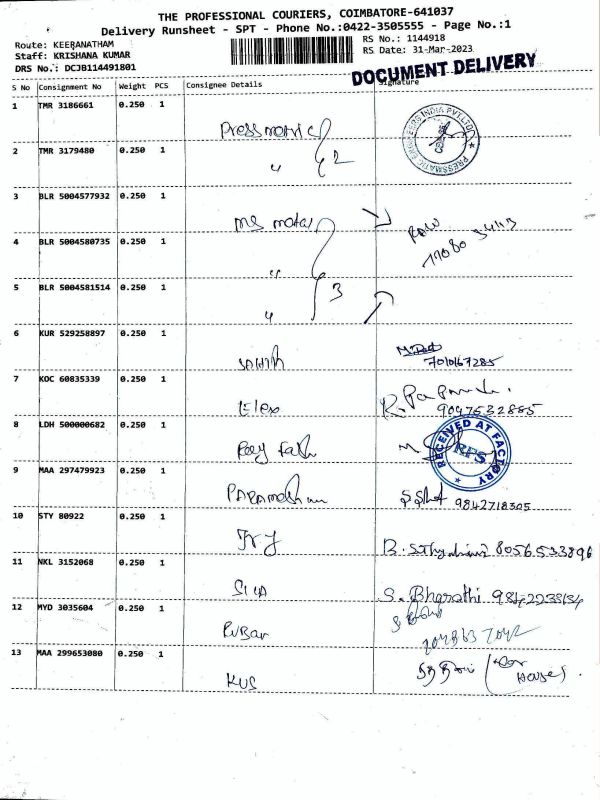 THE PROFESSIONAL COURIERS, COIMBATORE-641037
Delivery Runsheet - SPT - Phone No.:0422-3505555 - Page No.:1
Route: KEERANATHAM
RS No.: 1144918
Staff: KRISHANA KUMAR
RS Date: 31-Mar-2023
DRS No.: DCJB114491801
DOCUMENT DELIVERY
S No Consignment No Weight PCS Consignee Details Signature
1 TMR 3186661 0.250 1
Pressmatic
PRESSMATIC ENGINEERS INDIA PVT LTD
2 TMR 3179480 0.250 1
" 2
3 BLR 5004577932 0.250 1
4 BLR 5004580735 0.250 1
"
5 BLR 5004581514 0.250 1
" 3
6 KUR 529258897 0.250 1
7010167285
7 KOC 60835339 0.250 1
Elex
9047532885
8 LDH 500000682 0.250 1
RECEIVED AT FACTORY
RPS
9 MAA 297479923 0.250 1
9842718305
10 STY 80922 0.250 1
8056533896
11 NKL 3152068 0.250 1
S. Bharathi
12 MYD 3035604 0.250 1
13 MAA 299653080 0.250 1
KUS